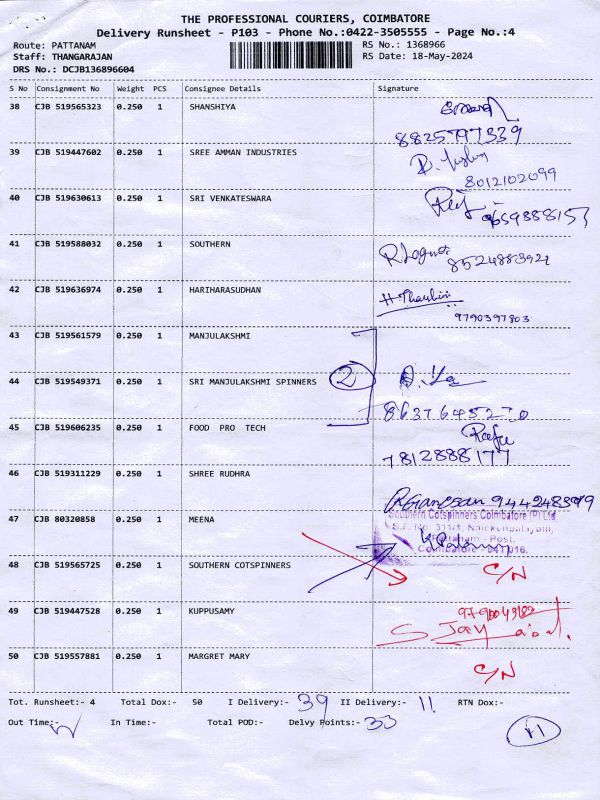 THE PROFESSIONAL COURIERS, COIMBATORE
Delivery Runsheet - P103 - Phone No.:0422-3505555 - Page No.:4
Route: PATTANAM RS No.: 1368966
Staff: THANGARAJAN RS Date: 18-May-2024
DRS No.: DCJB136896604
S No Consignment No Weight PCS Consignee Details Signature
38 CJB 519565323 0.250 1 SHANSHIYA
8825797339
39 CJB 519447602 0.250 1 SREE AMMAN INDUSTRIES
8012102099
40 CJB 519630613 0.250 1 SRI VENKATESWARA
9659888157
41 CJB 519588032 0.250 1 SOUTHERN
8524883921
42 CJB 519636974 0.250 1 HARIHARASUDHAN
9790397803
43 CJB 519561579 0.250 1 MANJULAKSHMI
44 CJB 519549371 0.250 1 SRI MANJULAKSHMI SPINNERS 2
8637645270
45 CJB 519606235 0.250 1 FOOD PRO TECH
7812888177
46 CJB 519311229 0.250 1 SHREE RUDHRA
R Ganesan
Southern Cotspinners Coimbatore (P) Ltd
47 CJB 80320858 0.250 1 MEENA
Pattanam - Post,
Coimbatore - 641 016.
48 CJB 519565725 0.250 1 SOUTHERN COTSPINNERS C/N
49 CJB 519447528 0.250 1 KUPPUSAMY
50 CJB 519557881 0.250 1 MARGRET MARY C/N
Tot. Runsheet:- 4 Total Dox:- 50 I Delivery:- 39 II Delivery:- 11 RTN Dox:-
Out Time:- In Time:- Total POD:- Delvy Points:- 33